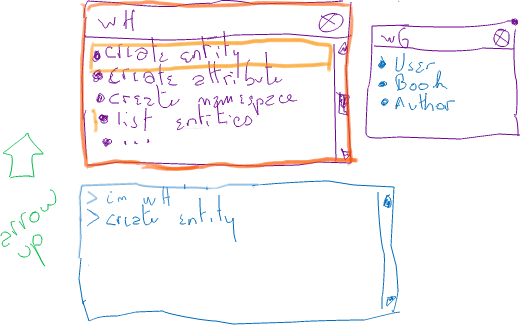 WH
create entity
create attribute
create namespace
list entities
...
WG
User
Book
Author
> im WH
> create entity
arrow
up